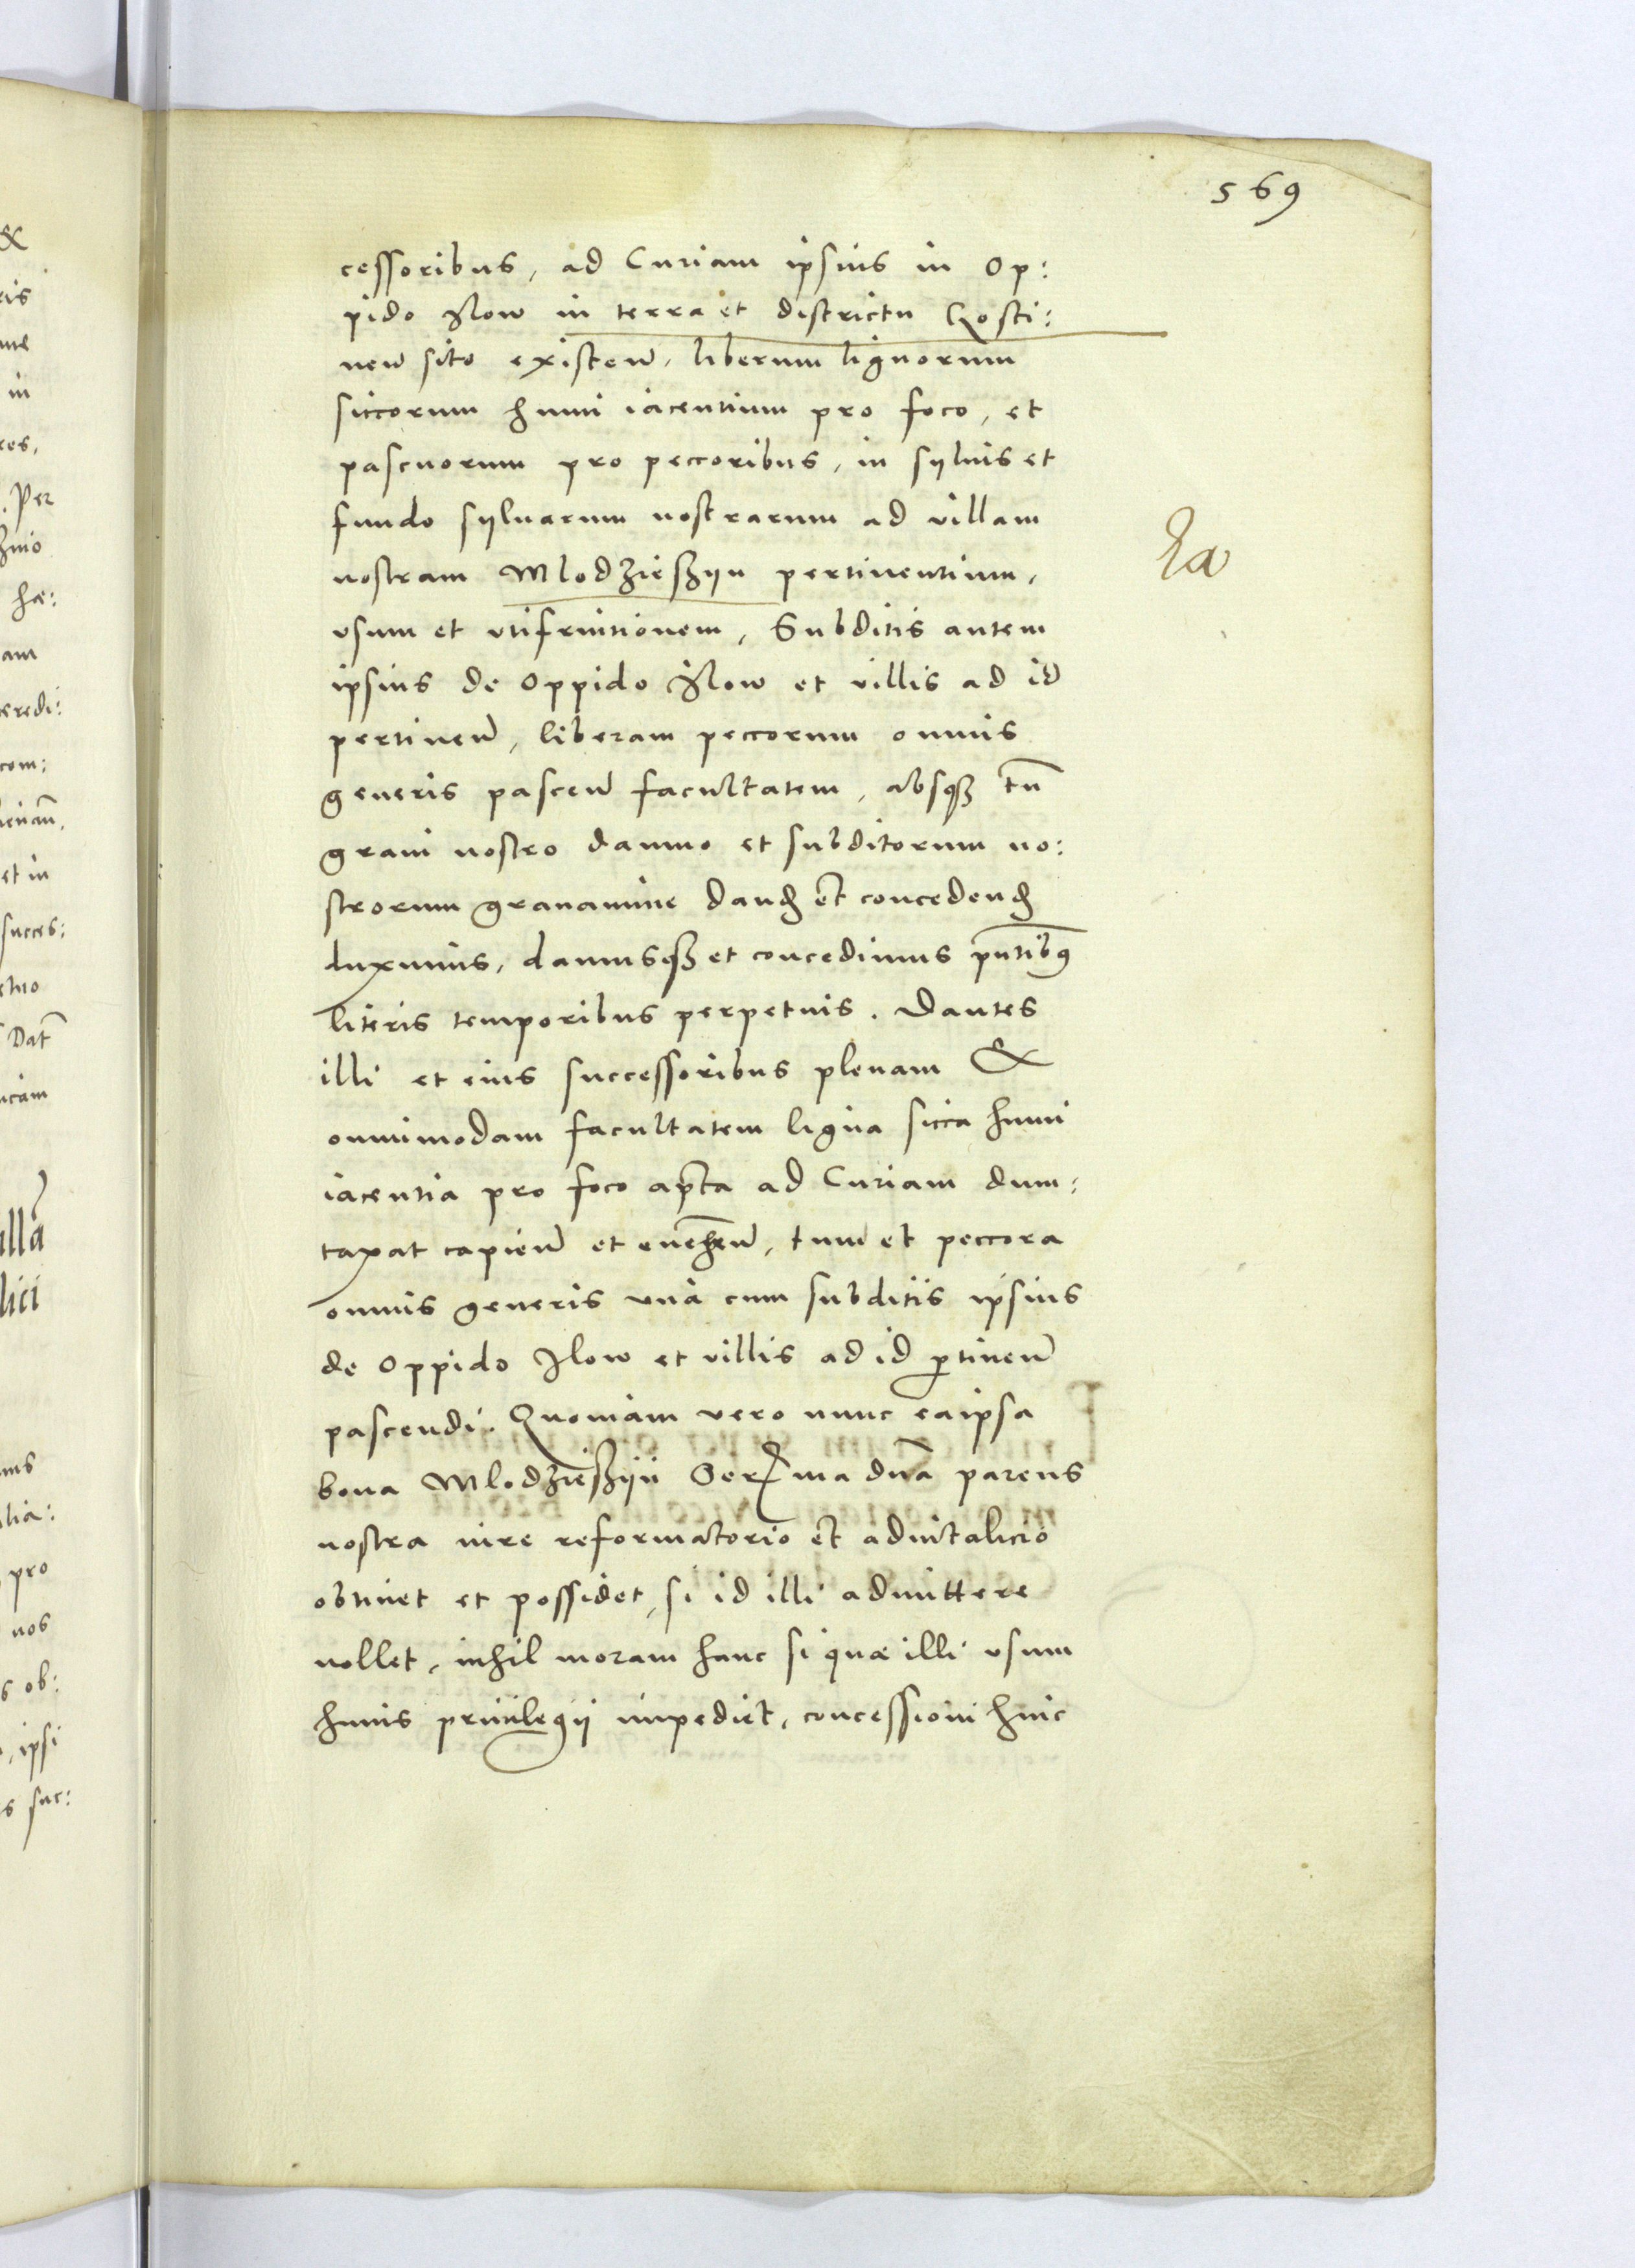 569
cessoribus, ad Curiam ipsius in Op:
pido Ilow in terra et districtu Gosti:
neñ sito existeñ, liberum lignorum
siccorum humi iacentium pro foco, et
pascuorum pro peccoribus, in syluis et
fundo syluarum nostrarum ad villam
nostram Mlodzieszyn pertinentium,
vsum et vtifruitionem, Subditis autem
ipsius de Oppido Ilow et villis ad id
pertineñ, liberam peccorum omnis
generis pasceñ facultatem, absqȝ tñ
graui nostro damno et subditorum no:
strorum grauamine danđ et concedenđ
duximus, damusqȝ et concedimus pñtibꝰ
literis temporibus perpetuis. Dantes
illi et eius successoribus plenam &
omnimodam facultatem ligna sicca humi
iacentia pro foco apta ad Curiam dum:
taxat capieñ et eueheñ, tum et peccora
omnis generis vnà cum subditis ipsius
de Oppido Ilow et villis ad id ꝑtineñ
pascendi. Quoniam vero nunc eaipsa
bona Mlodzieszyn Serma dña parens
nostra iure reformatorio et aduitalicio
obtinet et possidet, si id illi admittere
nollet, nihil moram hanc si quæ illi vsum
huius priuilegij impediet, concessioni huic